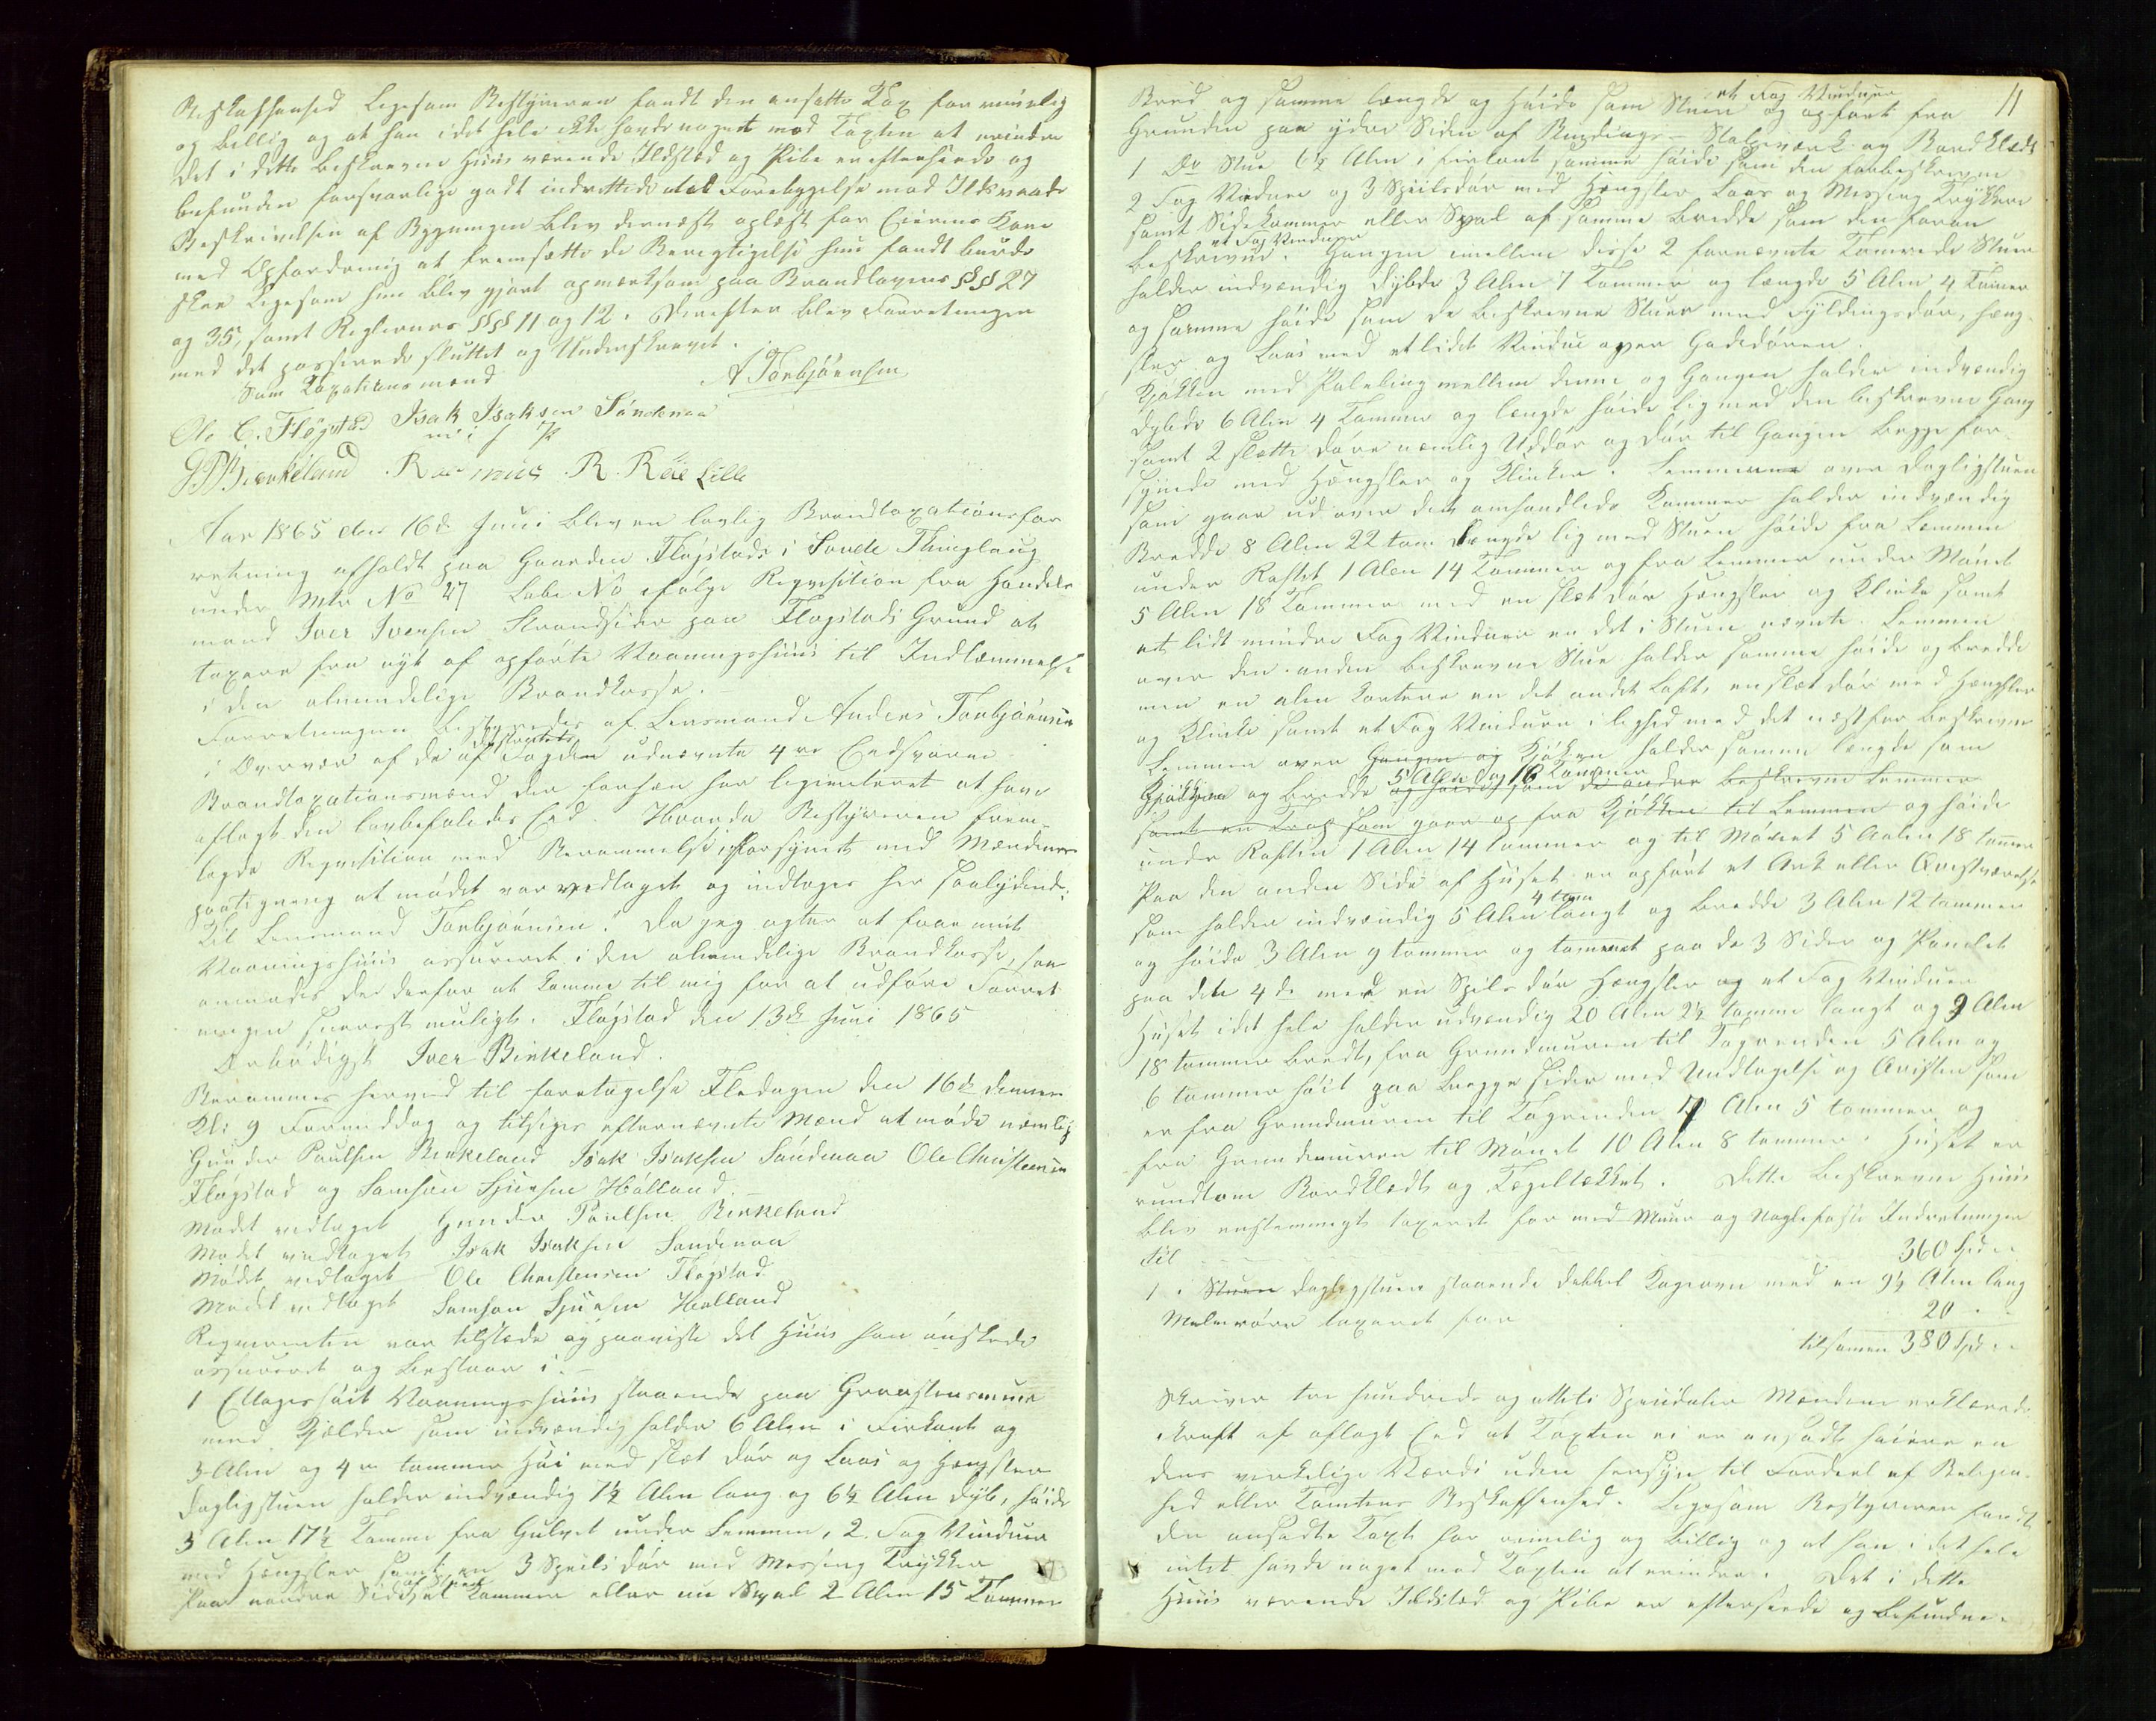 Beskaffenhed Ligesom Bestyreren fandt den ansatte Tax for rimelig
og billig og at han idet hele ikke havde noget mod Taxten at erindre
Det i dette beskrevne Huus værende Ildsted og Pibe er efterseede og
befunden forsvarlige godt indrettede til Forebyggelse mod Ildsvaade
Beskrivelsen af Bygningen blev dernæst oplæst for Eierens Kone
med Opfordring at fremsætte de Berigtigelse hun fandt burde
skee ligesom hun blev gjort opmærksom paa Brandlovens §§ 27
og 35, samt Reglernes §§§ 11 og 12. Derefter blev Forretningen
med det passerede sluttet og Underskrevet.
Som Taxationsmænd A Torbjörnsen
Ole C. Fløgstad Isak Isaksen Söndenaa
m i f P
G P Birkeland Rasmus R. Røe Lille
Aar 1865 den 16de Juni blev en lovlig Brandtaxationsfor
retning afholdt paa Gaarden Fløgstads i Sovde Thinglaug
under Mtr No 27 Løbe No ifølge Reqvisition fra Handels
mand Iver Iversen Strandsider paa Fløgstads Grund at
taxere fra nyt af opførte Vaaningshuus til Indlemmelse
i den almindelige Brandkasse. –
Forretningen bestyredes af Lensmand Anders Torbjörnsen
i Overvær af de af Fogden udnævnte 4re Eedsvorne
Brandtaxationsmænd der forhen har legimiteret at have
aflagt den lovbefalede Eed. Hvorda Bestyreren frem-
lagde Reqvisition med Berammelse forsynet med Mændenes
paategning at mødet var vedtaget og indtages her saalydende:
Til Lensmand Torbjörnsen! Da jeg agter at faae mit
Vaaningshuus assureret i den almindelige Brandkasse, saa
anmodes De derfor at komme til mig for at udføre Forret-
ningen snarest muligt. Fløgstad den 13de Juni 1865
Ærbødigst Iver Birkeland.
Berammes herved til foretagelse Fredagen den 16de dennes
Kl: 9 Formiddag og tilsiges efternævnte Mænd at møde nemlig
Gunder Paulsen Birkeland Isak Isaksen Söndenaa Ole Christensen
Fløgstad og Samson Sjursen Hølland. –
Mødet vedtaget Gunder Paulsen Birkeland
Mødet vedtaget Isak Isaksen Söndenaa
Mødet vedtaget – Ole Christensen Fløgstad
Mødet vedtaget Samson Sjursen Hølland
Reqvirenten var tilstæde og paaviste det Huus han ønskede
assureret og bestaar i. –
1 Etlages høit Vaaningshuus staaende paa Graastensmuur
med Kjelder som indvendig holder 6 Alen i Firkant og
3 Alen og 4re tommer Høi med slæt dør og Laas og Hængsler
dagligstuen holder indvendig 7½ Alen lang og 6½ Alen dyb, høide
3 Alen 17½ Tomme fra Gulvet under Lemmen, 2 Fag Vinduer
med Hængsler samt en 3 Speils dør med Messing Trykker
Paa nordre Side af Stuen et Kammer eller en Sval 2 Alen 15 Tommer
11
Bred og samme længde og Høide som Stuen et Fag Vinduer og opført fra
Grunden paa ydre Siden af Bindings- Stolpeværk og Bordklædt
1 Do Stue 6½ Alen i firkant samme høide som den forbeskrevne
2 Fag Vinduer og 3 Speilsdør med Hængsler Laas og Messing Trykkere
samt Sidekammer eller Sval af samme Bredde som den foran
beskrevne. et Fag Vinduer Gangen imellem disse 2 fornævnte Tømrede Stuer
holder indvendig dybde 3 Alen 7 Tommer og længde 5 Alen 4 Tommer
og samme høide som de beskrevne Stuer med Fyldingsdør, hæng-
sler og Laas med et lidet Vindue over Gadedøren.
Kjøkken med Paneling mellem denne og Gangen holder indvendig
dybde 6 Alen 4 Tommer og længde høide lig med den beskrevne Gang
samt 2 slætte døre nemlig Uddør og dør til Gangen begge for-
synede med Hængsler og Klinker. Lemmerne over dagligstuen
som gaar ud over det omhandlede Kammer holder indvendig
Bredde 8 Alen 22 tom Længde lig med Stuen høide fra Lemmen
under Raftet 1 Alen 14 Tommer og fra Lemmen under Mønet
5 Alen 18 Tommer med en slæt dør hængsler og Klinke samt
et lidt mindre Fag Vinduer en det i Stuen nævnte. Lemmen
over den anden beskrevne Stue holder samme høide og bredde
men en alen kortere en det andet Loft, en slæt dør med Hængsler
og Klinke samt et Fag Vinduer i lighed med det næstfor beskrevne
Lemmen over Gangen og Kjøken holder samme længde som
Kjøkken og bredde 5 Alen og 16 Tommer og høide som de andre beskrevne Lemmer
samt en Trap som gaar op fra Kjøkken til Lemmen og høide
under Raften 1 Alen 14 tommer og til Mønet 5 Aalen 18 tommer
Paa den anden Side af Huset er opført et Ark eller Qvistværelse
som holder indvendig 5 Alen 4 tom langt og bredde 3 Alen 12 tommer
og høide 3 Alen 9 tommer og tømret paa de 3 Sider og Panelet
paa dete 4de med en Speils dør Hængsler og et Fag Vinduer
Huset idet hele holder udvendig 20 Alen 2½ tomme langt og 9 Alen
18 tommer bredt, fra Grundmuren til Tagrenden 5 Alen og
6 tommer høit paa begge sider med Undtagelse og Qvisten som
er fra Grundmuren til Tagrenden 7 Alen 5 tommer og
fra Grundmuren til Mønet 10 Alen 8 tommer. Huset er
rundtom Bordklædt og Tegeltækket. Dette beskrevne Huus
blev enstemmigt taxeret for med Muur og Naglefaste Indretninger
til 360 Spd
1 i Stuen dagligstuen staaende dobbel Kogeovn med en 9½ Alen lang
Malmrøre taxeret for 20 "
tilsamen 380 Spd
Skriver tre hundrede og otteti Speciedaler Mændene erklærede
i kraft af aflagt Eed at Taxten ei er ansadt høiere en
dens virkelige Værdi uden hensyn til Fordeel af Beligen-
hed eller Tomtens Beskaffenhed. Ligesom Bestyreren fandt
den ansadte Taxt for rimelig og billig og at han i det hele
intet havde noget mod Taxten at erindre. Det i dette
Huus værende Ildsted og Pibe er efterseede og befundne.